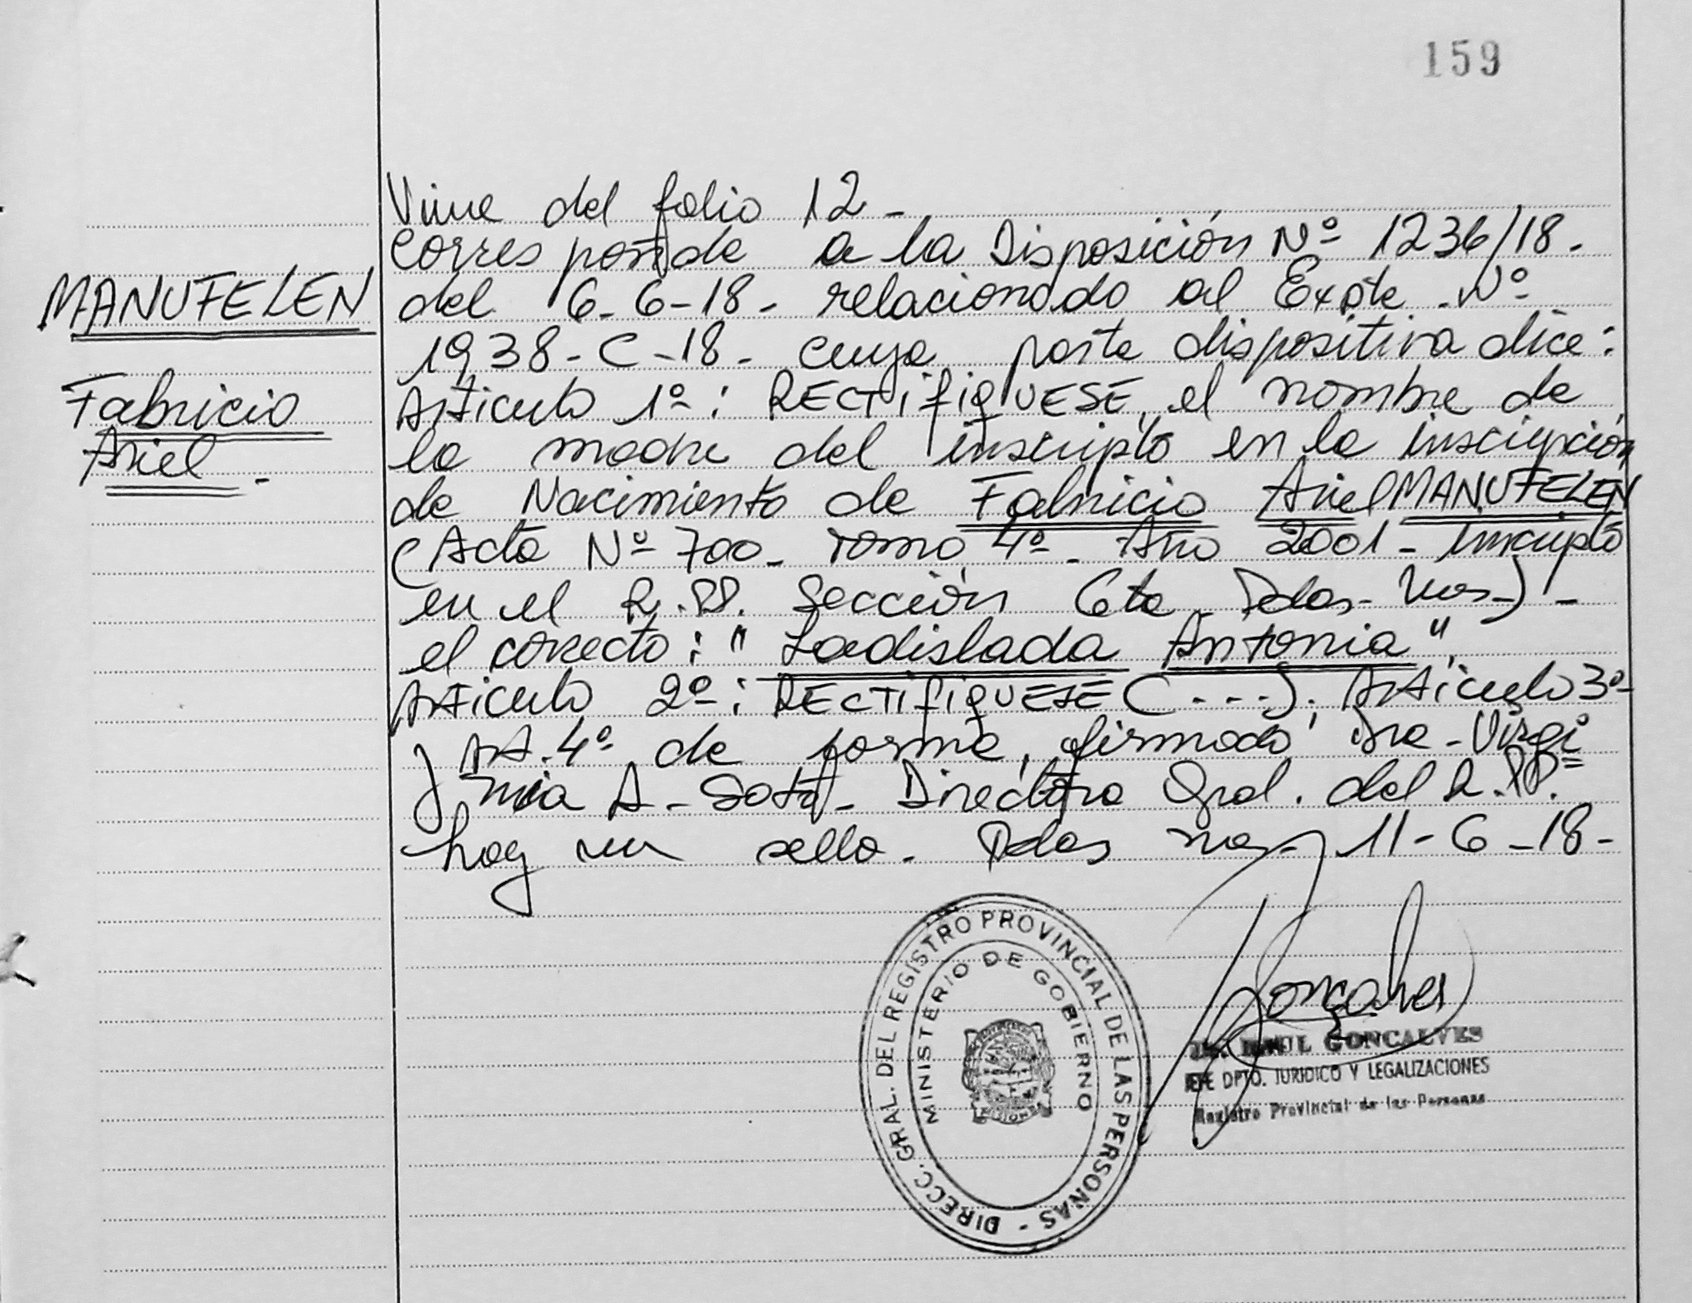 159
MANUFELEN
Fabricio
Ariel -
Viene del folio 12 -
Corresponde a la Disposición Nº 1236/18 -
del 6-6-18- relacionado al Expte. Nº
1938-C-18- cuya parte dispositiva dice:
Artículo 1º: RECTIFIQUESE, el nombre de
la madre del inscripto en la inscripción
de Nacimiento de Fabricio Ariel MANUFELEN
(Acta Nº 700- Tomo 4º- Año 2001- Inscripto
en el R.PP. Sección 6ta - Pdas- Mnes-) -
el correcto: "Ladislada Antonia".
Artículo 2º: RECTIFIQUESE (...). Artículo 3º-
y Art. 4º de forma, firmado, Dra - Virgi
nia A - Sotf - Directora Gral. del R.PP.
hay un sello. Pdas Mnes-, 11-6-18-
DIRECC. GRAL. DEL REGISTRO PROVINCIAL DE LAS PERSONAS -
MINISTERIO DE GOBIERNO
MISIONES
Gonçalves
RAUL GONCALVES
JEFE DPTO. JURIDICO Y LEGALIZACIONES
Registro Provincial de las Personas